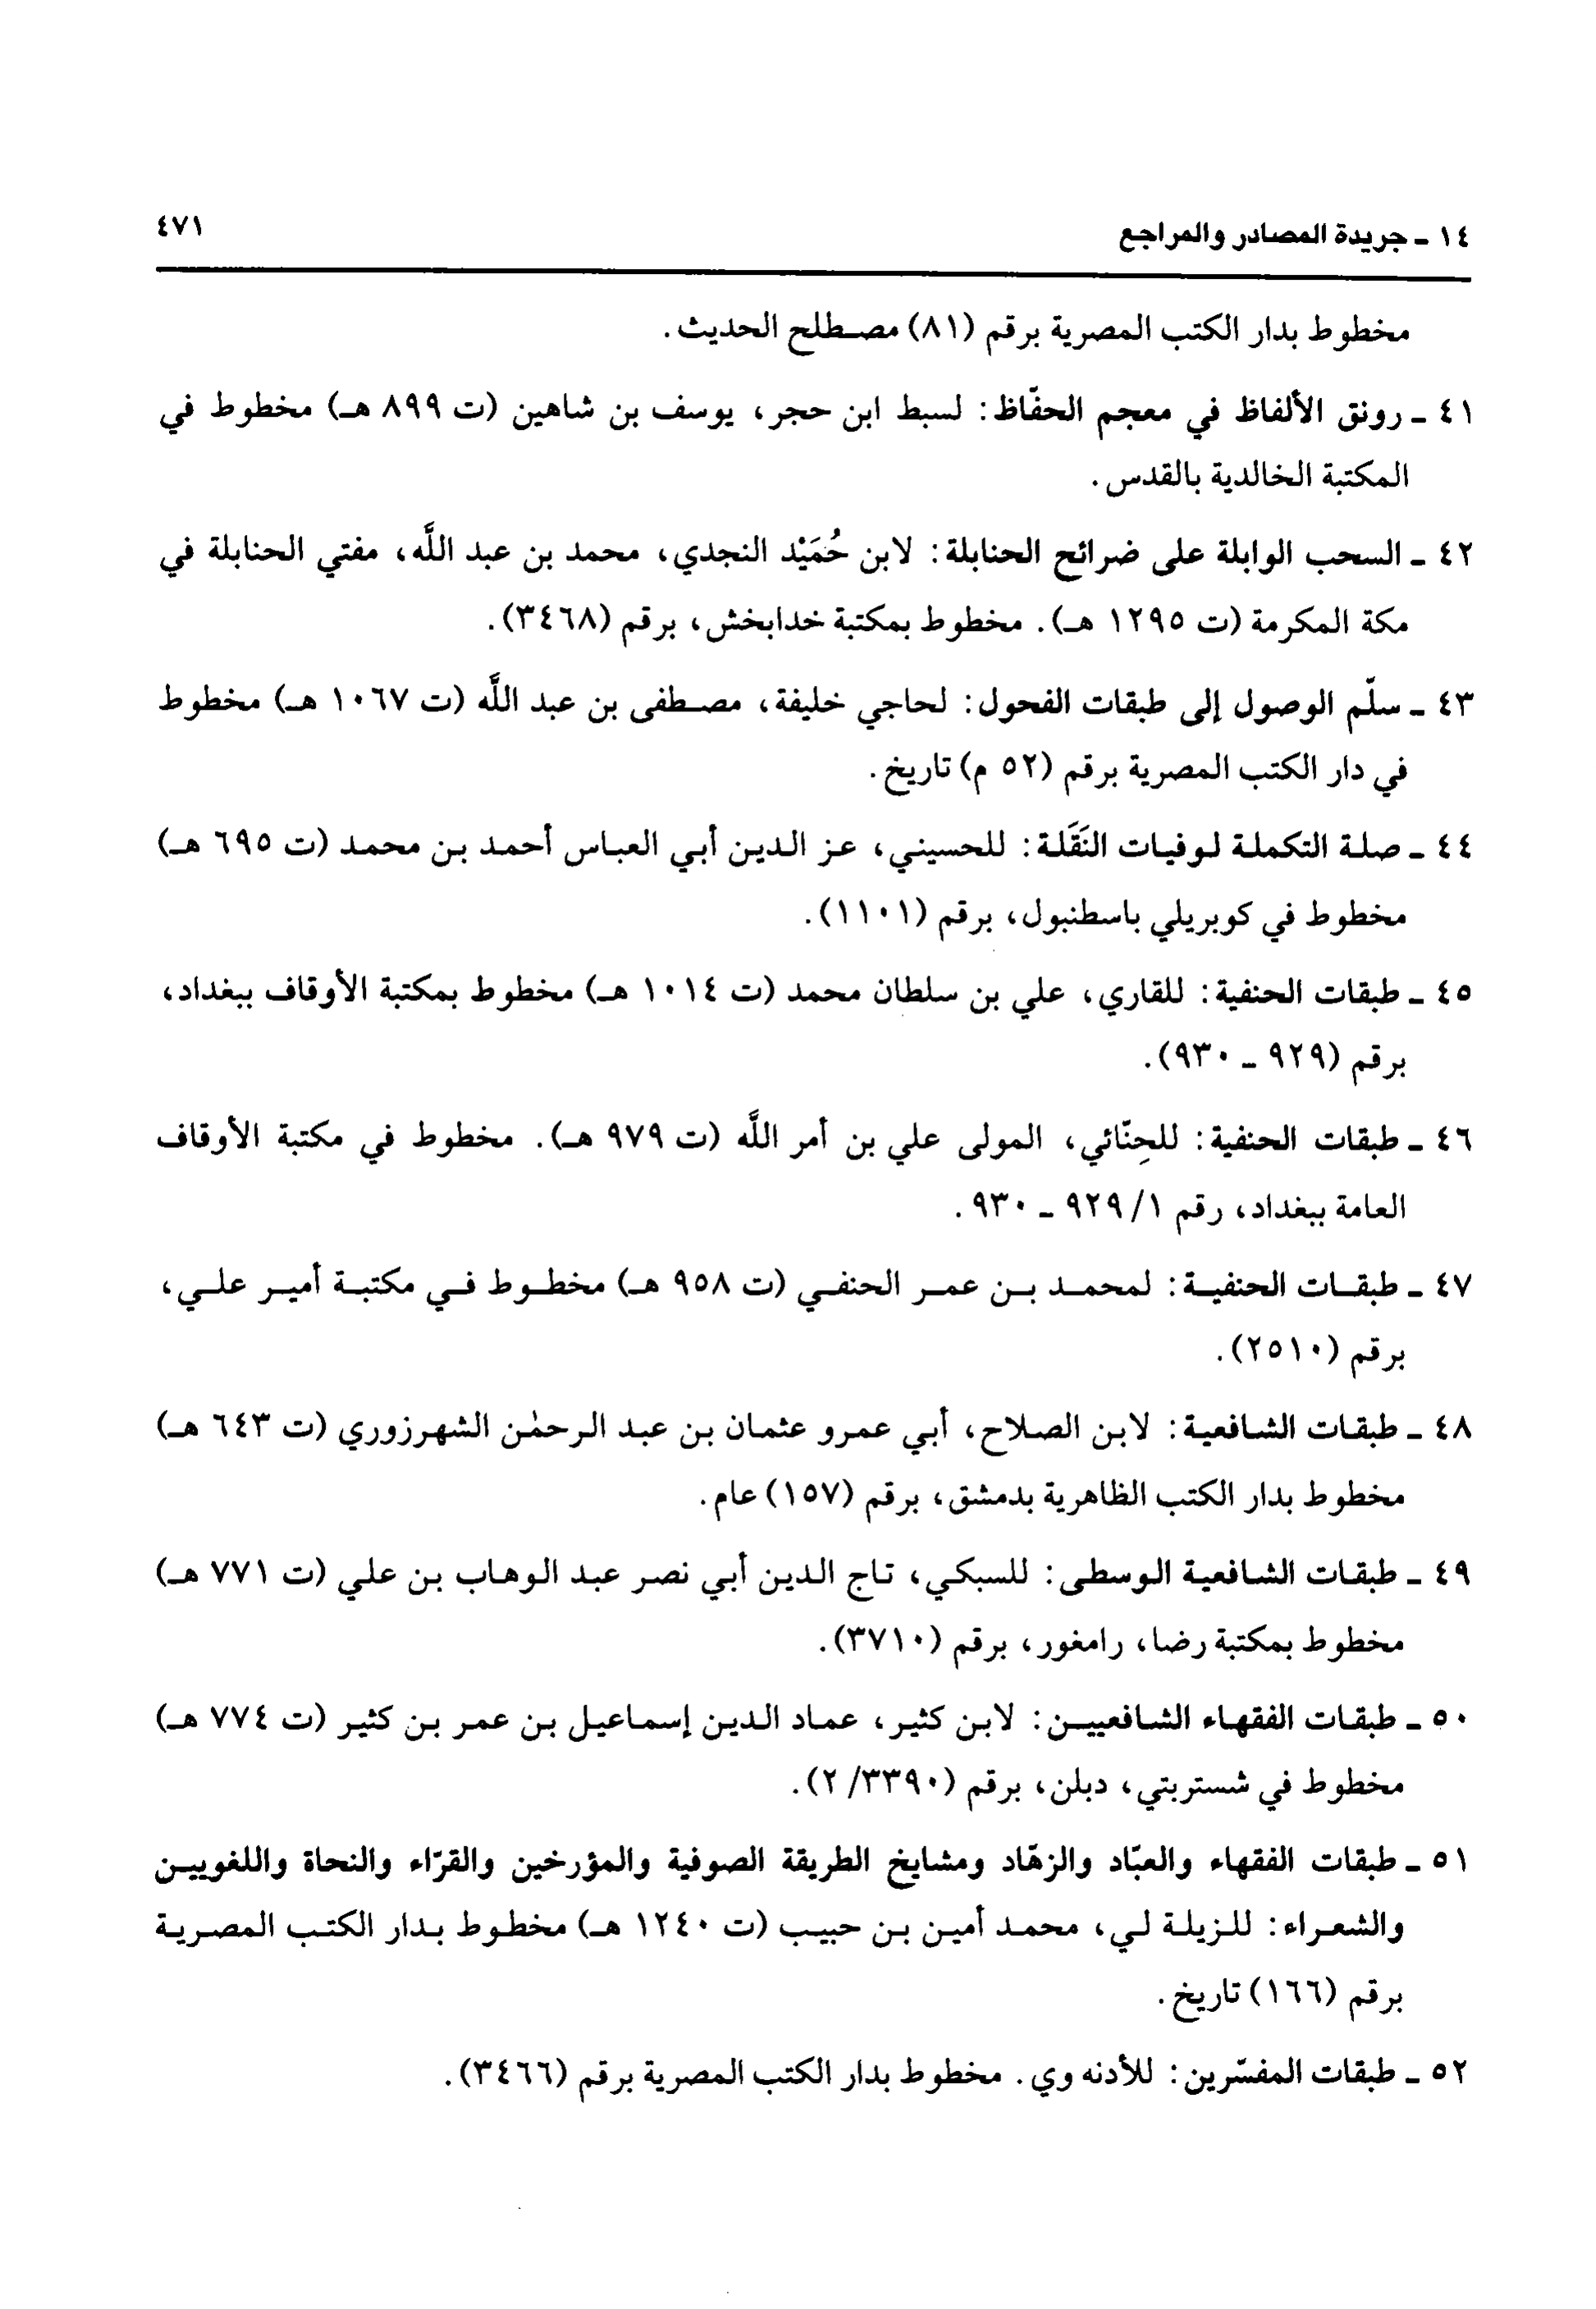 ١٤ ـ جريدة المصادر والمراجع ٤٧١
مخطوط بدار الكتب المصرية برقم (٨١) مصطلح الحديث.
٤١ ـ رونق الألفاظ في معجم الحفّاظ: لسبط ابن حجر، يوسف بن شاهين (ت ٨٩٩ هـ) مخطوط في
المكتبة الخالدية بالقدس.
٤٢ ـ السحب الوابلة على ضرائح الحنابلة: لابن حُمَيْد النجدي، محمد بن عبد اللَّه، مفتي الحنابلة في
مكة المكرمة (ت ١٢٩٥ هـ). مخطوط بمكتبة خدابخش، برقم (٣٤٦٨).
٤٣ ـ سلّم الوصول إلى طبقات الفحول: لحاجي خليفة، مصطفى بن عبد اللَّه (ت ١٠٦٧ هـ) مخطوط
في دار الكتب المصرية برقم (٥٢ م) تاريخ.
٤٤ ـ صلة التكملة لوفيات النَقَلة: للحسيني، عز الدين أبي العباس أحمد بن محمد (ت ٦٩٥ هـ)
مخطوط في كوبريلي باسطنبول، برقم (١١٠١).
٤٥ ـ طبقات الحنفية: للقاري، علي بن سلطان محمد (ت ١٠١٤ هـ) مخطوط بمكتبة الأوقاف ببغداد،
برقم (٩٢٩ ـ ٩٣٠).
٤٦ ـ طبقات الحنفية: للحِنّائي، المولى علي بن أمر اللَّه (ت ٩٧٩ هـ). مخطوط في مكتبة الأوقاف
العامة ببغداد، رقم ١/ ٩٢٩ ـ ٩٣٠.
٤٧ ـ طبقات الحنفية: لمحمد بن عمر الحنفي (ت ٩٥٨ هـ) مخطوط في مكتبة أمير علي،
برقم (٢٥١٠).
٤٨ ـ طبقات الشافعية: لابن الصلاح، أبي عمرو عثمان بن عبد الرحمٰن الشهرزوري (ت ٦٤٣ هـ)
مخطوط بدار الكتب الظاهرية بدمشق، برقم (١٥٧) عام.
٤٩ ـ طبقات الشافعية الوسطى: للسبكي، تاج الدين أبي نصر عبد الوهاب بن علي (ت ٧٧١ هـ)
مخطوط بمكتبة رضا، رامغور، برقم (٣٧١٠).
٥٠ ـ طبقات الفقهاء الشافعيين: لابن كثير، عماد الدين إسماعيل بن عمر بن كثير (ت ٧٧٤ هـ)
مخطوط في شستربتي، دبلن، برقم (٣٣٩٠/ ٢).
٥١ ـ طبقات الفقهاء والعبّاد والزهّاد ومشايخ الطريقة الصوفية والمؤرخين والقرّاء والنحاة واللغويين
والشعراء: للزيلة لي، محمد أمين بن حبيب (ت ١٢٤٠ هـ) مخطوط بدار الكتب المصرية
برقم (١٦٦) تاريخ.
٥٢ ـ طبقات المفسّرين: للأدنه وي. مخطوط بدار الكتب المصرية برقم (٣٤٦٦).